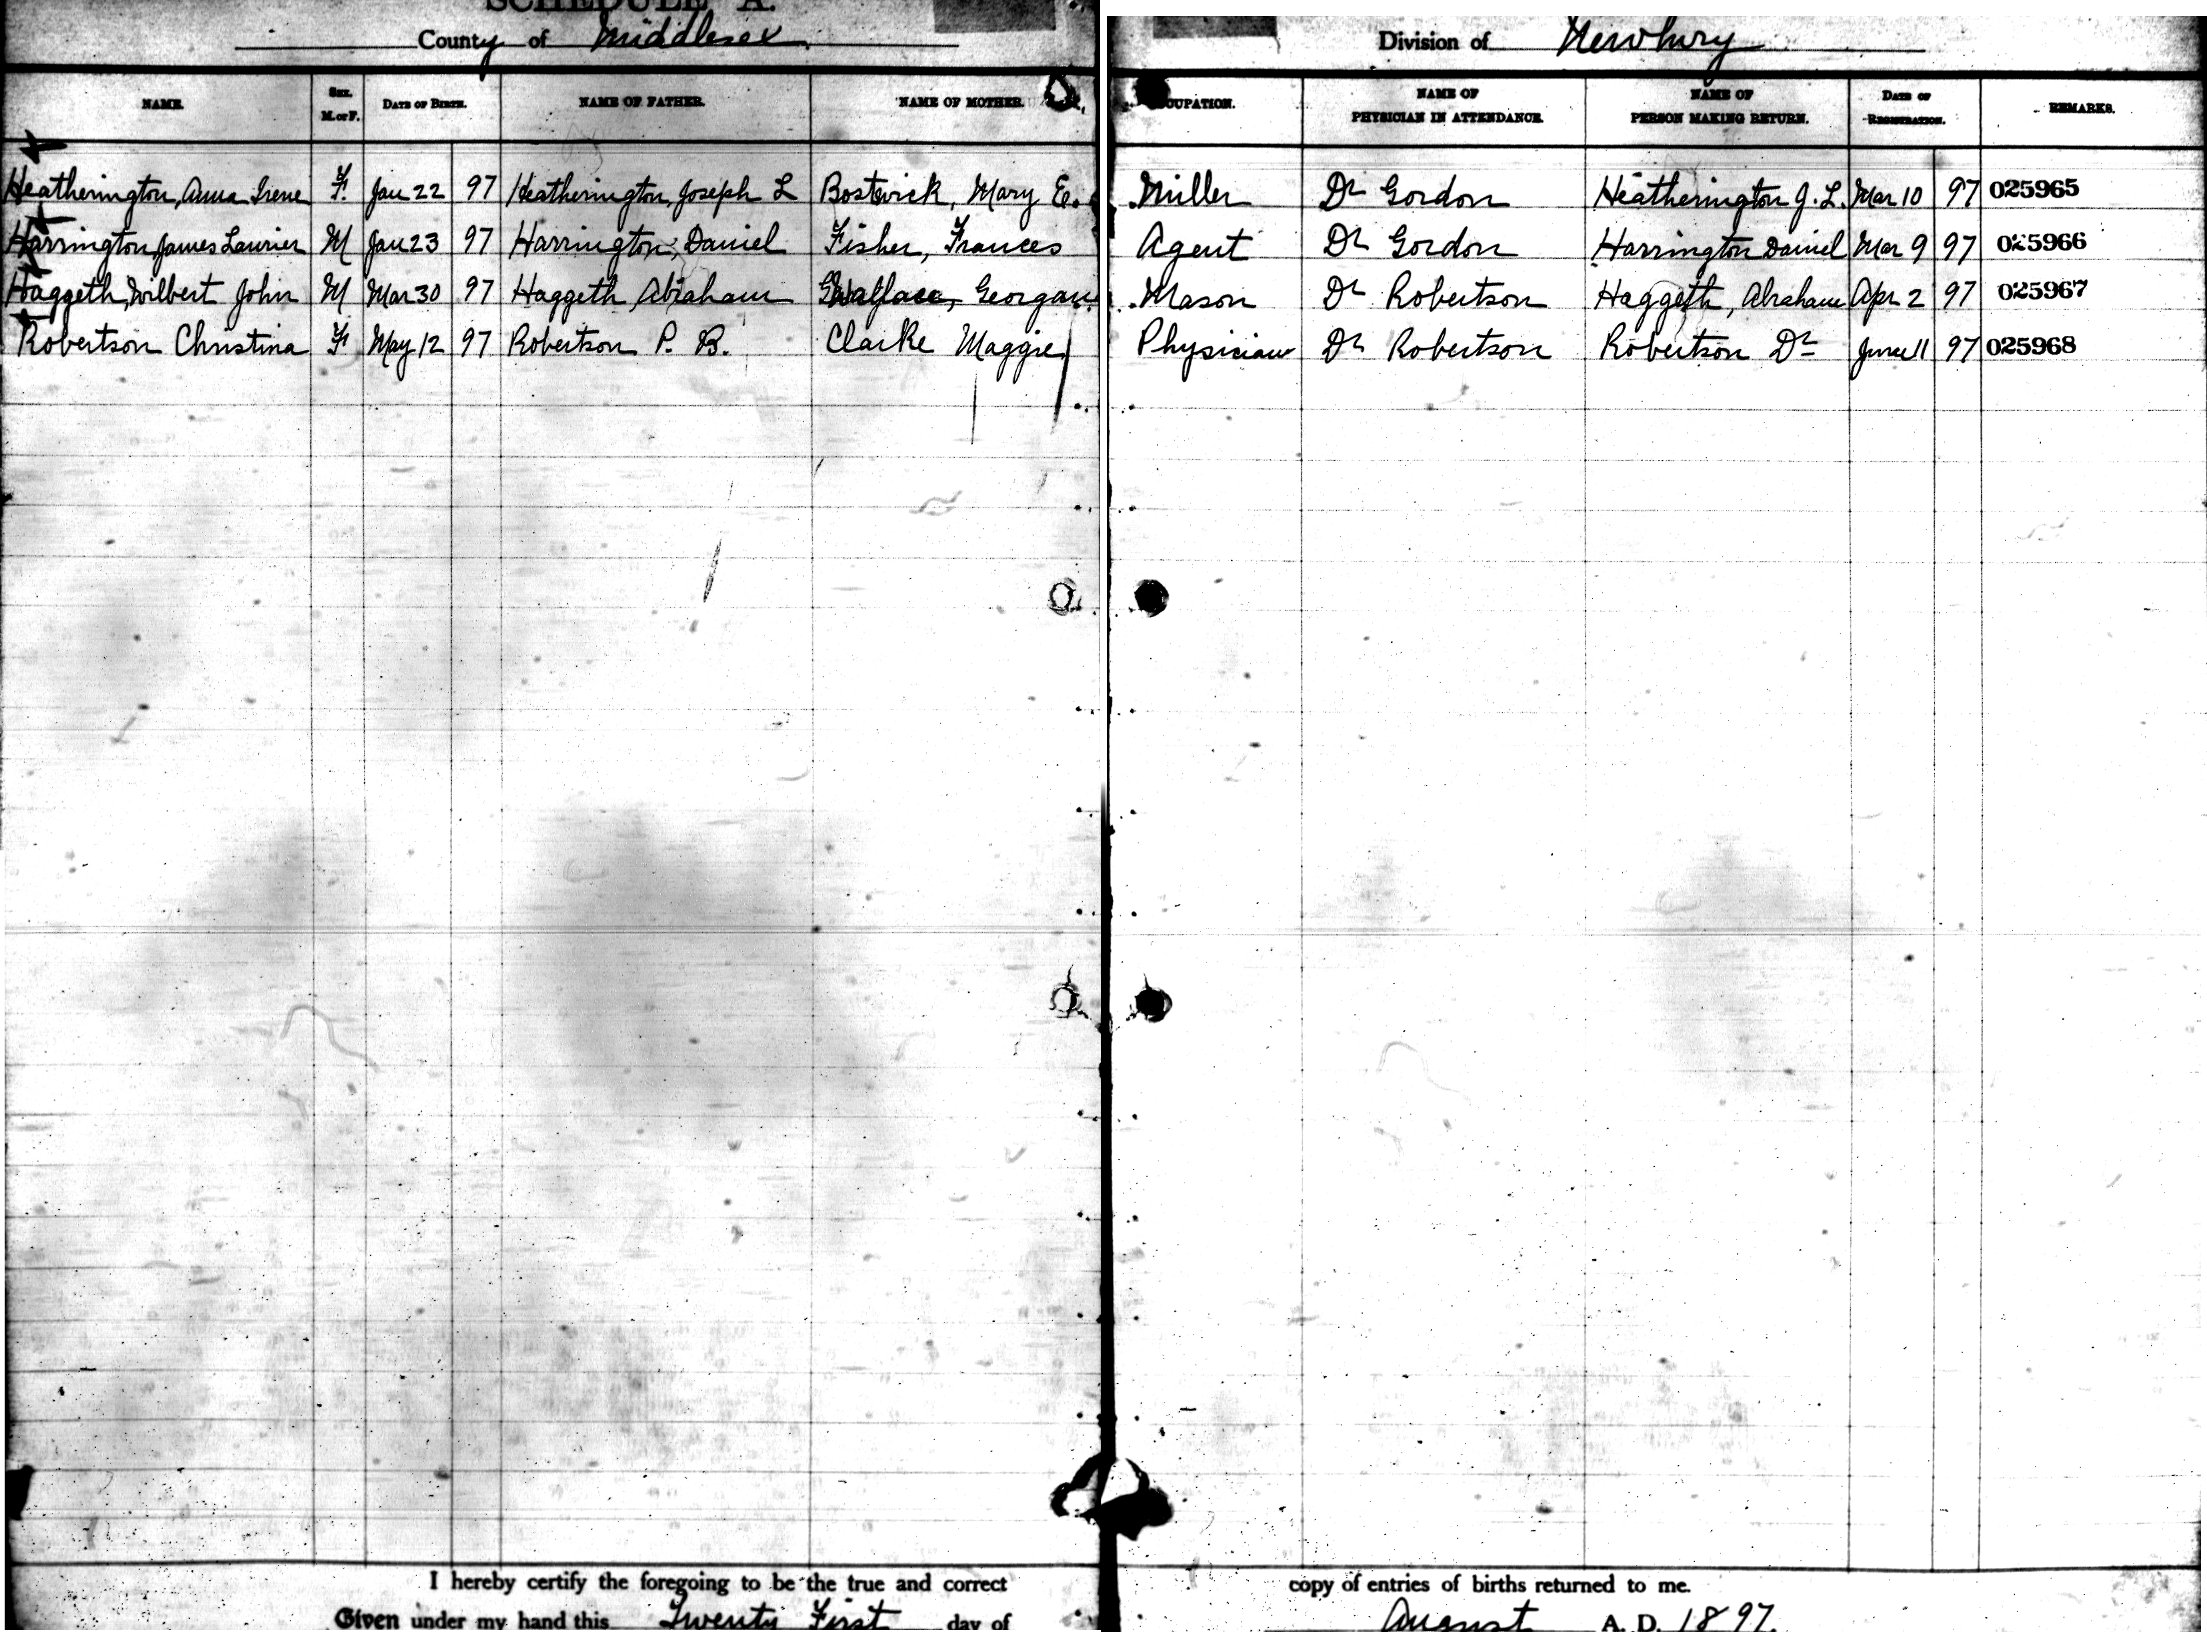 SCHEDULE A.
County of Middlesex Division of Newbury
NAME. SEX. M. or F. DATE OF BIRTH. NAME OF FATHER. NAME OF MOTHER. OCCUPATION. NAME OF PHYSICIAN IN ATTENDANCE. NAME OF PERSON MAKING RETURN. DATE OF REGISTRATION. REMARKS.
Heatherington, Anna Irene F. Jan 22 97 Heatherington, Joseph L Bostwick, Mary E. Miller Dr Gordon Heatherington J. L. Mar 10 97 025965
Harrington, James Laurier M Jan 23 97 Harrington, Daniel Fisher, Frances Agent Dr Gordon Harrington Daniel Mar 9 97 025966
Haggeth, Wilbert John M Mar 30 97 Haggeth, Abraham Wallace, Georgan Mason Dr Robertson Haggeth, Abraham Apr 2 97 025967
Robertson Christina F May 12 97 Robertson P. B. Clarke Maggie Physician Dr Robertson Robertson Dr June 11 97 025968
I hereby certify the foregoing to be the true and correct copy of entries of births returned to me.
Given under my hand this Twenty First day of August A. D. 1897.